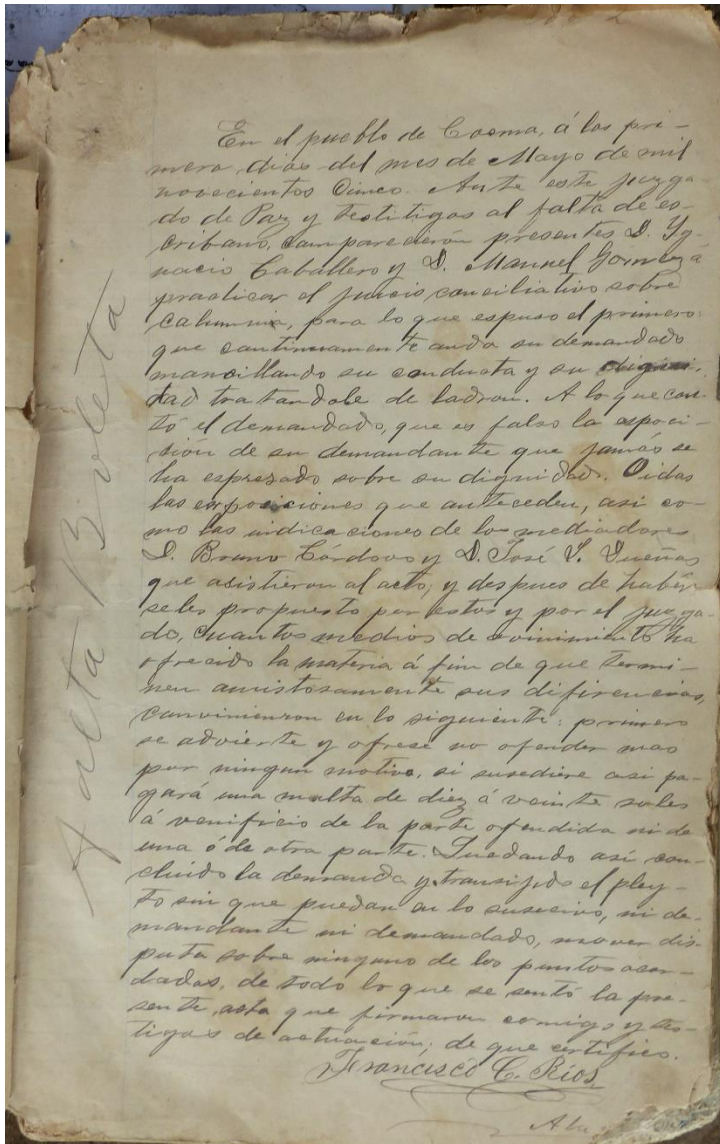 En el pueblo de Cosma, á los pri-
mera dias del mes de Mayo de mil
novecientos Cinco. Ante este juzga-
do de Paz y testitigos al falta de es-
cribano, comparecieron presentes D. Yg-
nacio Caballero y D. Manuel Gomez á
practicar el juicio conciliativo sobre
calumnia, para lo que espuso el primero:
que continuamente anda su demandado
mancillando su conducta y su digni-
dad tratandole de ladron. A lo que con-
tó el demandado, que es falso la esposi-
sión de su demandante que jamás se
ha espresado sobre su dignidad. Oidas
las exposiciones que anteceden, asi co-
mo las indicaciones de los mediadores
D. Bruno Córdova y D. José S. Dueñas
que asistieron al acto, y despues de haber
seles propuesto por estos y por el juzga-
do, cuantos medios de avinimiento ha
ofrecido la materia á fin de que termi-
nen amistosamente sus difirencias,
convinieron en lo siguiente: primero
se advierte y ofrese no ofender mas
por ningun motivo, si susediere asi pa-
gará una multa de diez á veinte soles
á venificio de la parte ofendida ni de
una ó de otra parte. Quedando asi con-
cluido la demanda y transijido el pley-
to sin que puedan en lo susecivo, ni de-
mandante ni demandado, mover dis-
puta sobre ninguno de los puntos acor-
dados, de todo lo que se sentó la pre-
sente acta que firmaron comigo y tes-
tigos de actuación; de que certifico.
Francisco C. Ríos
Falta Boleta